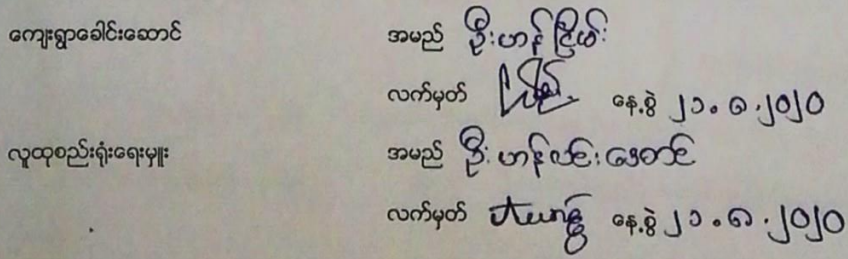 ကျေးရွာခေါင်းဆောင် အမည် ဦးဟန်ငြိမ်း
လက်မှတ် နေ့စွဲ ၂၁.၈.၂၀၂၀
လူထုစည်းရုံးရေးမှူး အမည် ဦးဟန်လင်း
လက်မှတ် နေ့စွဲ ၂၁.၈.၂၀၂၀